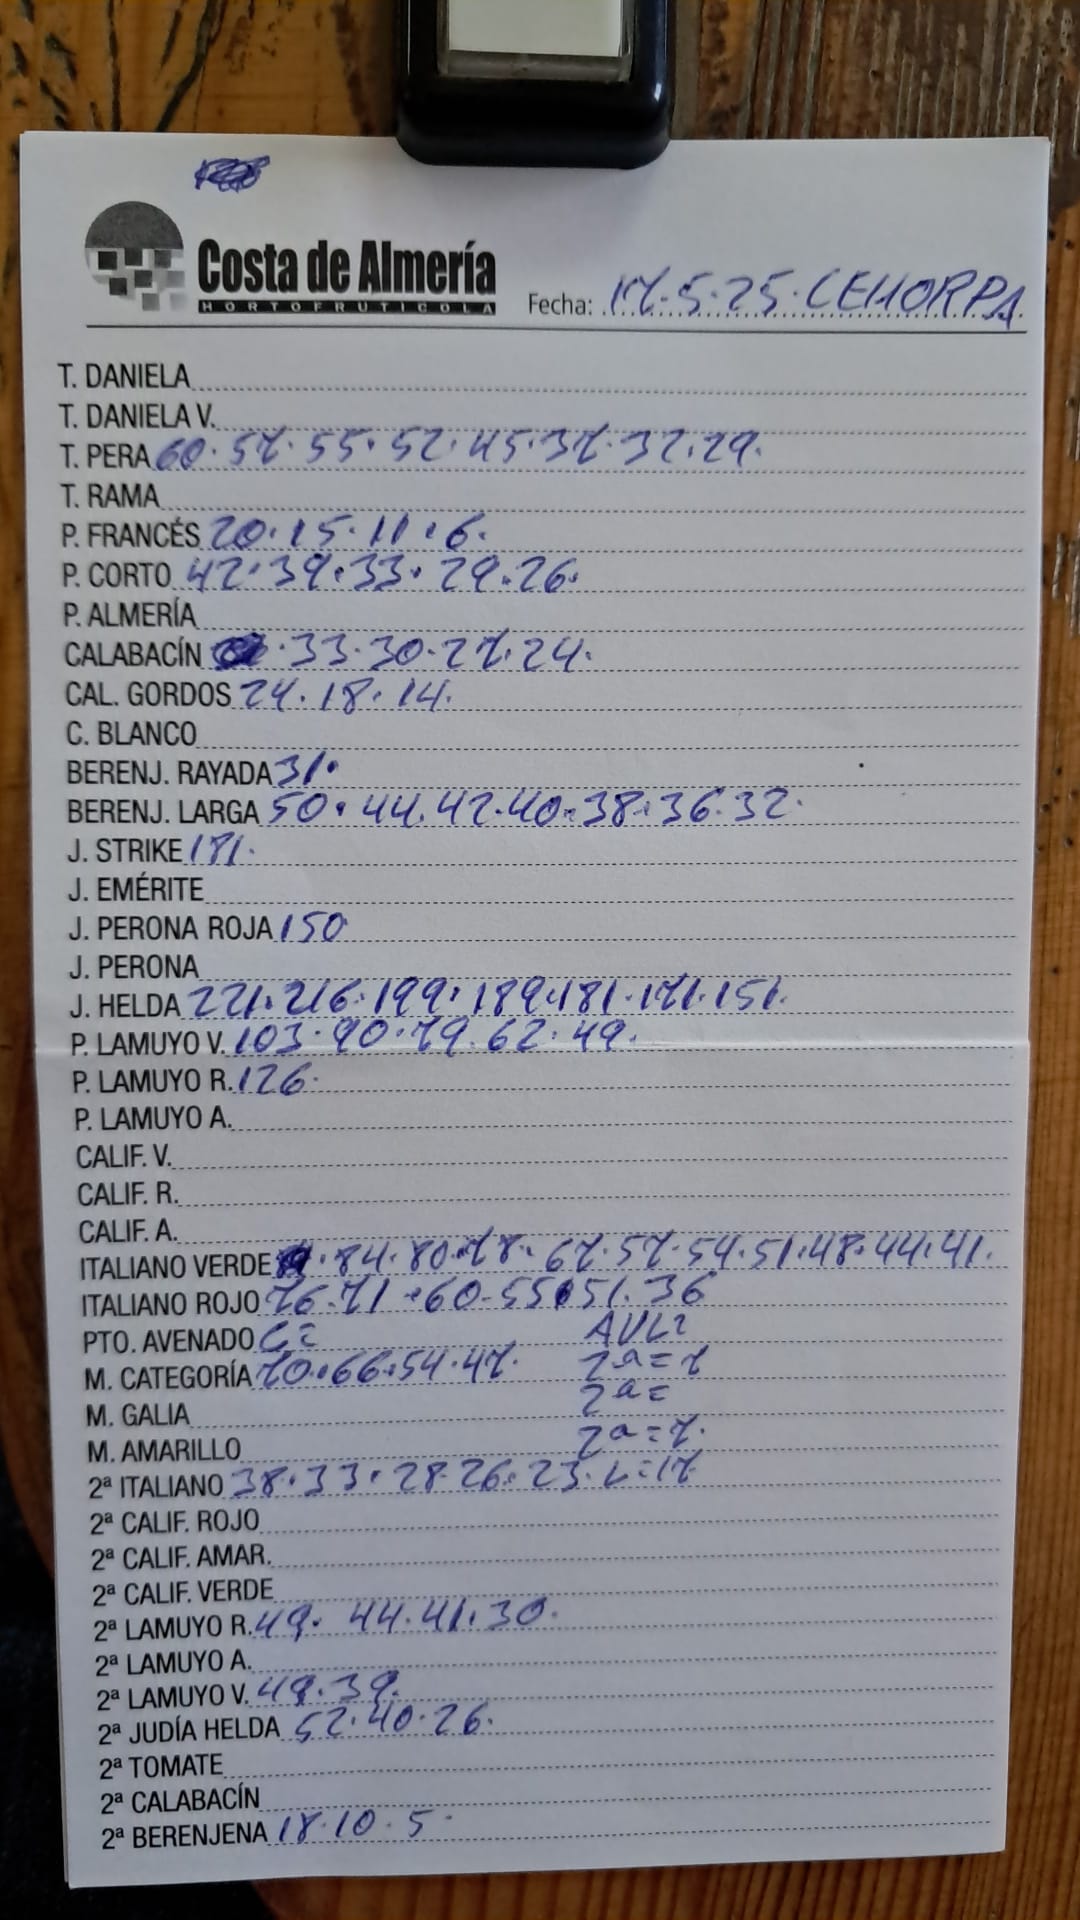 Costa de Almería
HORTOFRUTICOLA
Fecha: 17.5.25. CEHORPA
T. DANIELA
T. DANIELA V.
T. PERA 60. 57. 55. 52. 45. 37. 32. 29.
T. RAMA
P. FRANCÉS 20. 15. 11. 6.
P. CORTO 42. 39. 33. 29. 26.
P. ALMERÍA
CALABACÍN . 33. 30. 27. 24.
CAL. GORDOS 24. 18. 14.
C. BLANCO
BERENJ. RAYADA 31.
BERENJ. LARGA 50. 44. 42. 40. 38. 36. 32.
J. STRIKE 181.
J. EMÉRITE
J. PERONA ROJA 150
J. PERONA
J. HELDA 221. 216. 199. 189. 181. 171. 151.
P. LAMUYO V. 103. 90. 79. 62. 49.
P. LAMUYO R. 126.
P. LAMUYO A.
CALIF. V.
CALIF. R.
CALIF. A.
ITALIANO VERDE . 84. 80. 78. 67. 57. 54. 51. 48. 44. 41.
ITALIANO ROJO 76. 71. 60. 55. 51. 36
PTO. AVENADO
M. CATEGORÍA 70. 66. 54. 47. 2ª = 7
M. GALIA 2ª =
M. AMARILLO 2ª = 7.
2ª ITALIANO 38. 33. 28. 26. 23. L = 17
2ª CALIF. ROJO
2ª CALIF. AMAR.
2ª CALIF. VERDE
2ª LAMUYO R. 49. 44. 41. 30.
2ª LAMUYO A.
2ª LAMUYO V. 49. 39.
2ª JUDÍA HELDA 52. 40. 26.
2ª TOMATE
2ª CALABACÍN
2ª BERENJENA 18. 10. 5.